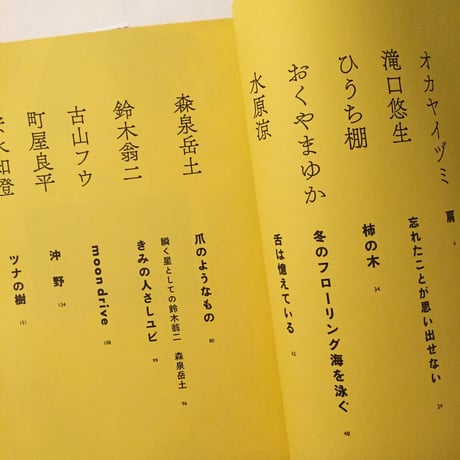 オカヤイヅミ
肩
滝口悠生
忘れたことが思い出せない 24
ひうち棚
柿の木 34
おくやまゆか
冬のフローリング海を泳ぐ 48
水原涼
舌は憶えている
森泉岳土
爪のようなもの 80
瞬く星としての鈴木翁二 森泉岳土 96
鈴木翁二
きみの人さしユビ 99
古山フウ
moondrive 108
町屋良平
沖野 134
ツナの樹 151